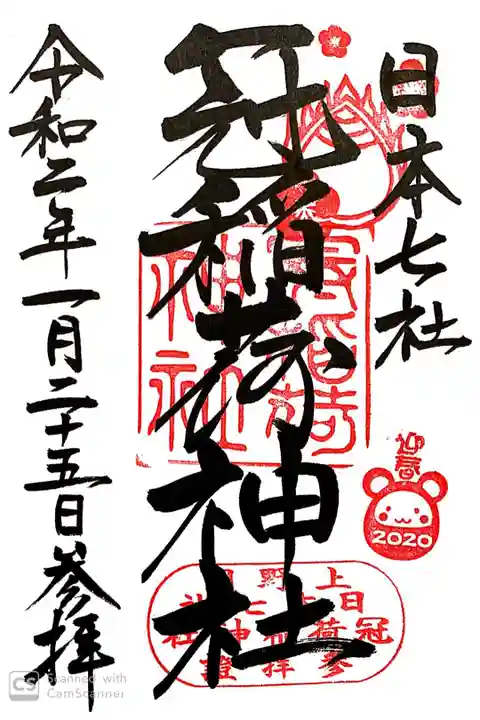 日本七社
冠稲荷神社
令和二年一月二十五日参拝
冠稲荷
神社
迎春
2020
CS Scanned with
CamScanner